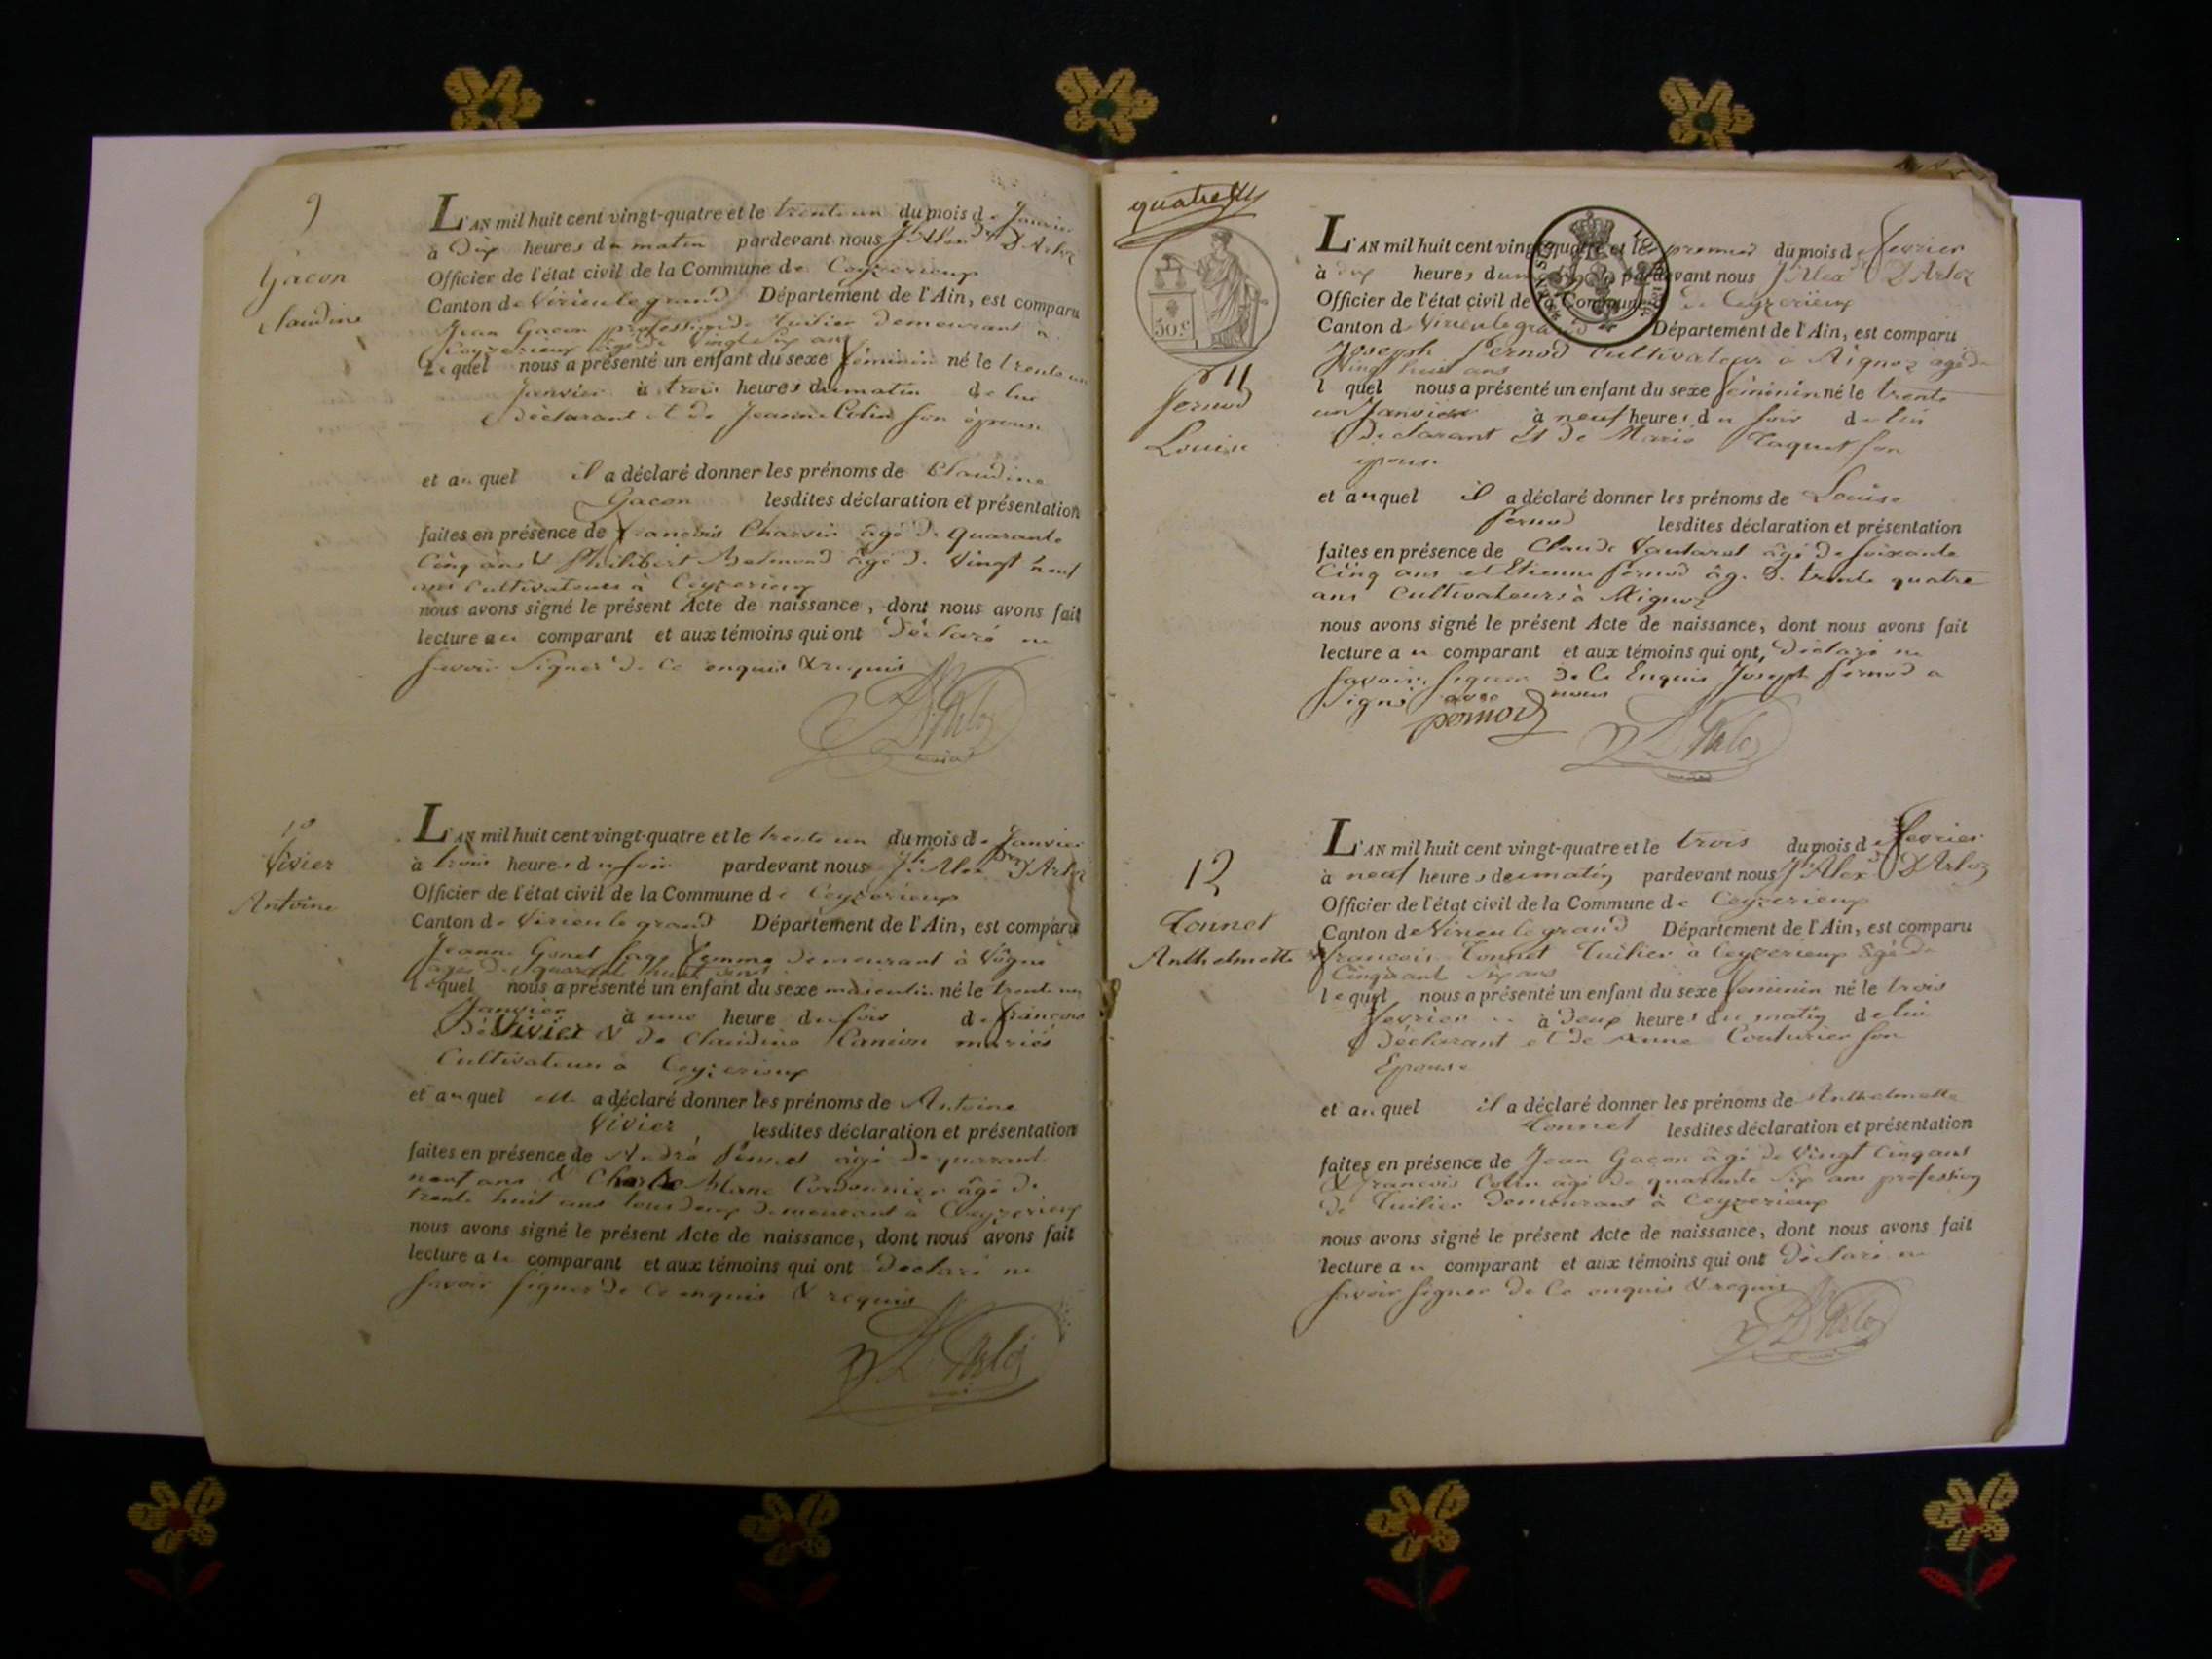 9
Gacon
Claudine
L'AN mil huit cent vingt-quatre et le trente un du mois de Janvier
à Dix heures du matin pardevant nous Jh Alexdre D'Arloz
Officier de l'état civil de la Commune de Ceyzerieux
Canton de Virieu le grand Département de l'Ain, est comparu
Jean Gacon profession de tuilier demeurant à
Ceyzerieux âgé de vingt six ans
Lequel nous a présenté un enfant du sexe féminin né le trente un
Janvier à trois heures du matin de lui
Déclarant et de Jeanne Colin son épouse
et auquel il a déclaré donner les prénoms de Claudine
Gacon lesdites déclaration et présentation
faites en présence de François Charvin âgé de quarante
Cinq ans & Philibert Belmond âgé de vingt neuf
ans Cultivateurs à Ceyzerieux
nous avons signé le présent Acte de naissance, dont nous avons fait
lecture au comparant et aux témoins qui ont Déclaré ne
savoir signer de ce enquis & requis
D'Arloz
10
Vivier
Antoine
L'AN mil huit cent vingt-quatre et le trente un du mois de Janvier
à trois heures du soir pardevant nous Jh Alexdre D'Arloz
Officier de l'état civil de la Commune de Ceyzerieux
Canton de Virieu le grand Département de l'Ain, est comparu
Jeanne Gonet sage femme demeurant à Vogne
âgée de quarante huit ans
lequel nous a présenté un enfant du sexe masculin né le trente un
Janvier à une heure du soir de françois
Vivier & de Claudine Canion mariés
Cultivateurs à Ceyzerieux
et auquel elle a déclaré donner les prénoms de Antoine
Vivier lesdites déclaration et présentation
faites en présence de André âgé de quarante
neuf ans & Charle Blanc Cordonnier âgé de
trente huit ans tous deux demeurant à Ceyzerieux
nous avons signé le présent Acte de naissance, dont nous avons fait
lecture au comparant et aux témoins qui ont Déclaré ne
savoir signer de ce enquis & requis
D'Arloz
quatre
30.c
11
Pernod
Louise
L'AN mil huit cent vingt-quatre et le premier du mois de fevrier
à dix heures du pardevant nous Jh Alexdre D'Arloz
Officier de l'état civil de la Commune de Ceyzerieux
Canton de Virieu le grand Département de l'Ain, est comparu
Joseph Pernod Cultivateur à Aignoz âgé de
Vingt huit ans
l quel nous a présenté un enfant du sexe féminin né le trente
un Janvier à neuf heures du soir de lui
Déclarant et de Marie Taquet son
epouse
et auquel il a déclaré donner les prénoms de Louise
Pernod lesdites déclaration et présentation
faites en présence de Claude Vautaret âgé de soixante
Cinq ans et Etienne Pernod âgé de trente quatre
ans Cultivateurs à Aignoz
nous avons signé le présent Acte de naissance, dont nous avons fait
lecture au comparant et aux témoins qui ont, déclaré ne
savoir signer de Ce Enquis Joseph Pernod a
signé avec nous
pernod
D'Arloz
12
Tonnet
Anthelmette
L'AN mil huit cent vingt-quatre et le trois du mois de fevrier
à neuf heures du matin pardevant nous Jh Alexdre D'Arloz
Officier de l'état civil de la Commune de Ceyzerieux
Canton de Virieu le grand Département de l'Ain, est comparu
François Tonnet Tuilier à Ceyzerieux âgé de
Cinquante six ans
lequel nous a présenté un enfant du sexe feminin né le trois
fevrier à deux heures du matin de lui
Déclarant et de Anne Couturier son
Epouse
et auquel il a déclaré donner les prénoms de Anthelmette
Tonnet lesdites déclaration et présentation
faites en présence de Jean Gacon âgé de Vingt Cinq ans
& françois Colin âgé de quarante six ans profession
de Tuilier demeurant à Ceyzerieux
nous avons signé le présent Acte de naissance, dont nous avons fait
lecture au comparant et aux témoins qui ont Déclaré ne
savoir signer de Ce enquis & requis
D'Arloz